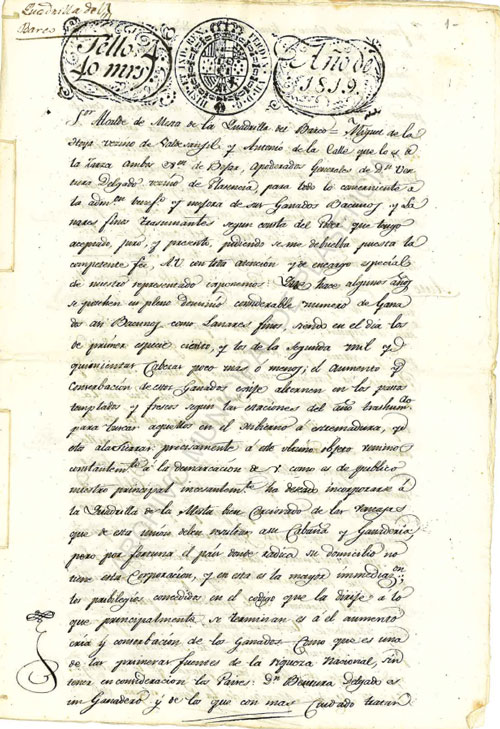 Quadrilla del
Barco
1
Sello
40 mrs
HISP. ET IND. REX FERDIN. VII. D. G.
Año de
1819.
Sor Alcalde de Mesta de la Quadrilla del Barco = Miguel de la
Hoya vecino de y Antonio de la Calle que lo es de
la Zarza ambos de Bejar, Apoderados Generales de Dn Ven
tura Delgado vecino de Plasencia, para todo lo concerniente a
la admon. y mejora de sus Ganados Bacunos y La
nares finos trasumantes segun consta del Poder que tengo
aceptado, juro, y presento, pidiendo se me debuelba puesta la
competente fee, A.V. con toda atencion y de encargo especial
de nuestro representado exponemos: Que hace algunos años
se posehen en pleno dominio considerable numero de Gana
dos asi Bacunos, como Lanares finos siendo en el dia los
de primer especie ciento, y los de la segunda mil y
quinientas Cabezas poco mas ó menos; el aumento y
Conserbacion de estos Ganados exije alternen en los pastos
templados y frescos segun las estaciones del año trashumdo
para buscar aquellos en el imbierno a estremadura, y
esta alas sierras precisamente á este
constantemte á la demarcacion de V. y como es de publico
nuestro principal ha deseado incorporarse á
la Quadrilla de la Mesta bien Cerciorado de las Ventajas
que de esta union deben resultar a su Cabaña y Ganaderia
pero por fortuna el pais donde radica su domicilio no
tiene esta Corporacion, y en esta es la mayor immediacon
los privilegios concedidos en el codigo que la dirije a lo
que principalmente se terminan es á el aumento
cria y conserbacion de los Ganados Como que es una
de las primeras fuentes de la riqueza Nacional, sin
tener en consideracion los Paises: Dn Bentura Delgado es
un Ganadero y de lo que con mas Cuidado tratar